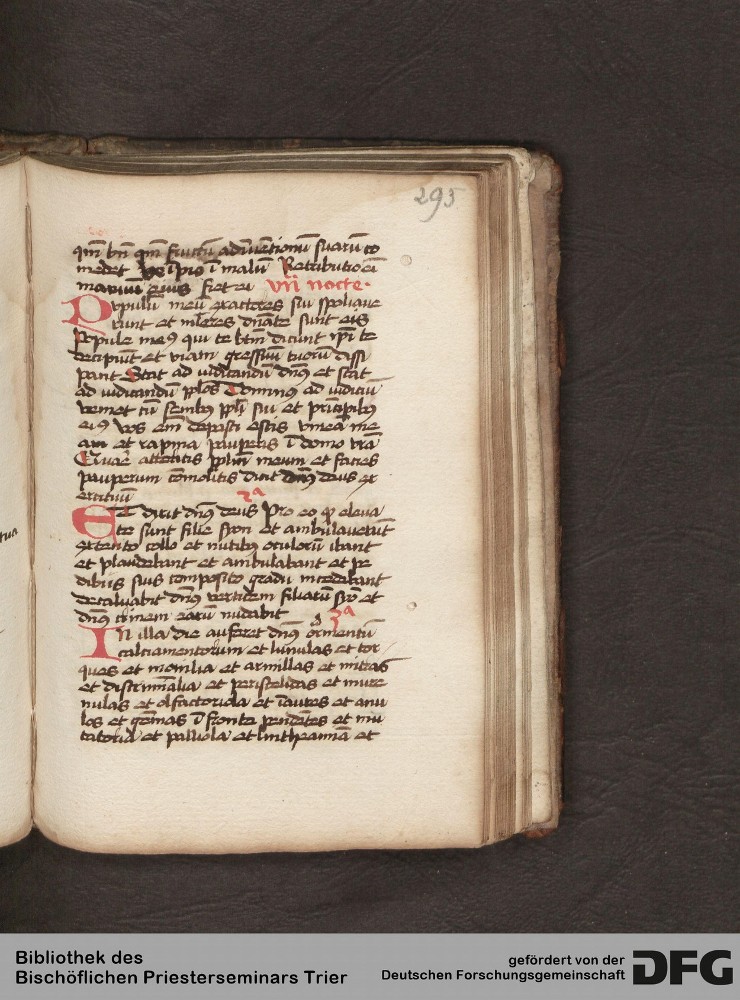 293
qm̄ bn̄ qm̄ fructū adinuētionū suarū co
medet Ve īpio ī malū Retributio eī
manuū eius fiet ei vi nocte
Popułū meū exactores sui spoliaue
runt et mułeres dn̄ate sunt eis
Popule meꝰ qui te btm̄ dicunt ip̄i te
decipiūt et viam gressuū tuorū dissi
pant Stat ad iudicandū dn̄s et stat
ad iudicandū pp̄los Dominus ad iudiciū
veniet cū senibꝫ pp̄li sui et prīcipibꝫ
eiꝰ vos em̄ depasti estis vineā me
am et rapina pauperis ī domo vrā
Quare atteritis pp̄lm̄ meum et facies
pauperum cōmolitis dicit dn̄s deus ex
ercituū 2ᵃ
Et dixit dn̄s deus Pro eo qꝫ eleua
te sunt filie syon et ambulauerūt
extento collo et nutibꝫ oculorū ibant
et plaudebant et ambulabant et pe
dibus suis composito gradu incedebant
decaluabit dn̄s verticem filiarū syō et
dn̄s crinem earū nudabit 3ᵃ
In illa die auferet dn̄s ornmentū
calciamentorum et lunulas et tor
ques et monilia et armillas et mitras
et discriminalia et periscelidas et mure
nulas et olfactoriola et īaures et anu
los et gēmas ī fronte pendētes et mu
tatoria et palliola et linthiamīa et
tua
Bibliothek des
Bischöflichen Priesterseminars Trier
gefördert von der
Deutschen Forschungsgemeinschaft
DFG